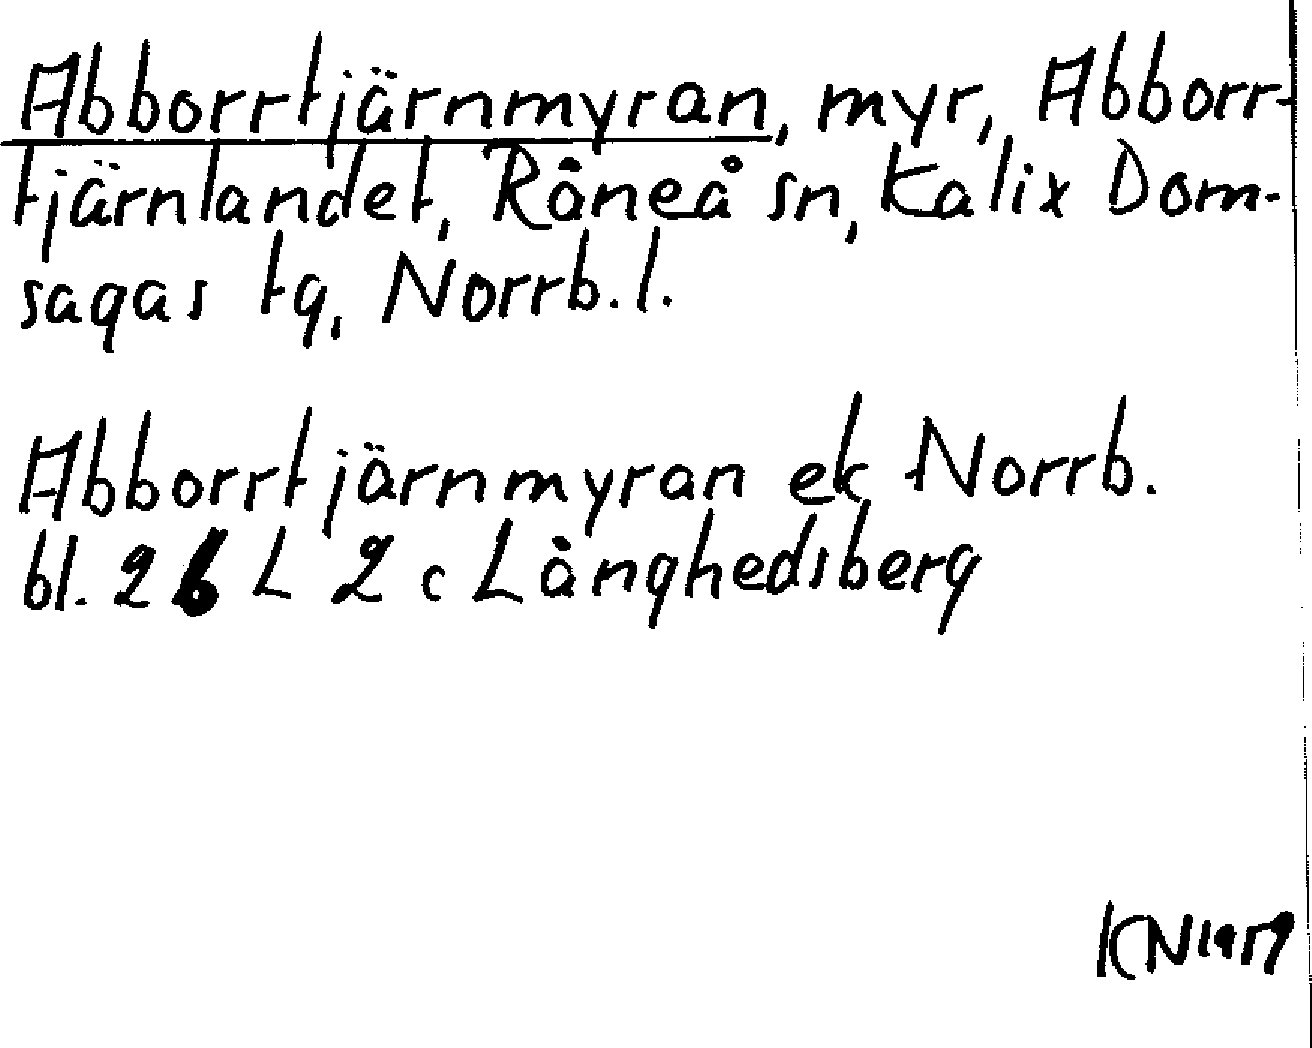 Abborrtjärnmyran, myr, Abborr-
tjärnlandet, Råneå sn, Kalix Dom-
sagas tg, Norrb. l.
Abborrtjärnmyran ek Norrb.
bl. 26 L 2 c Långhedsberg
KN